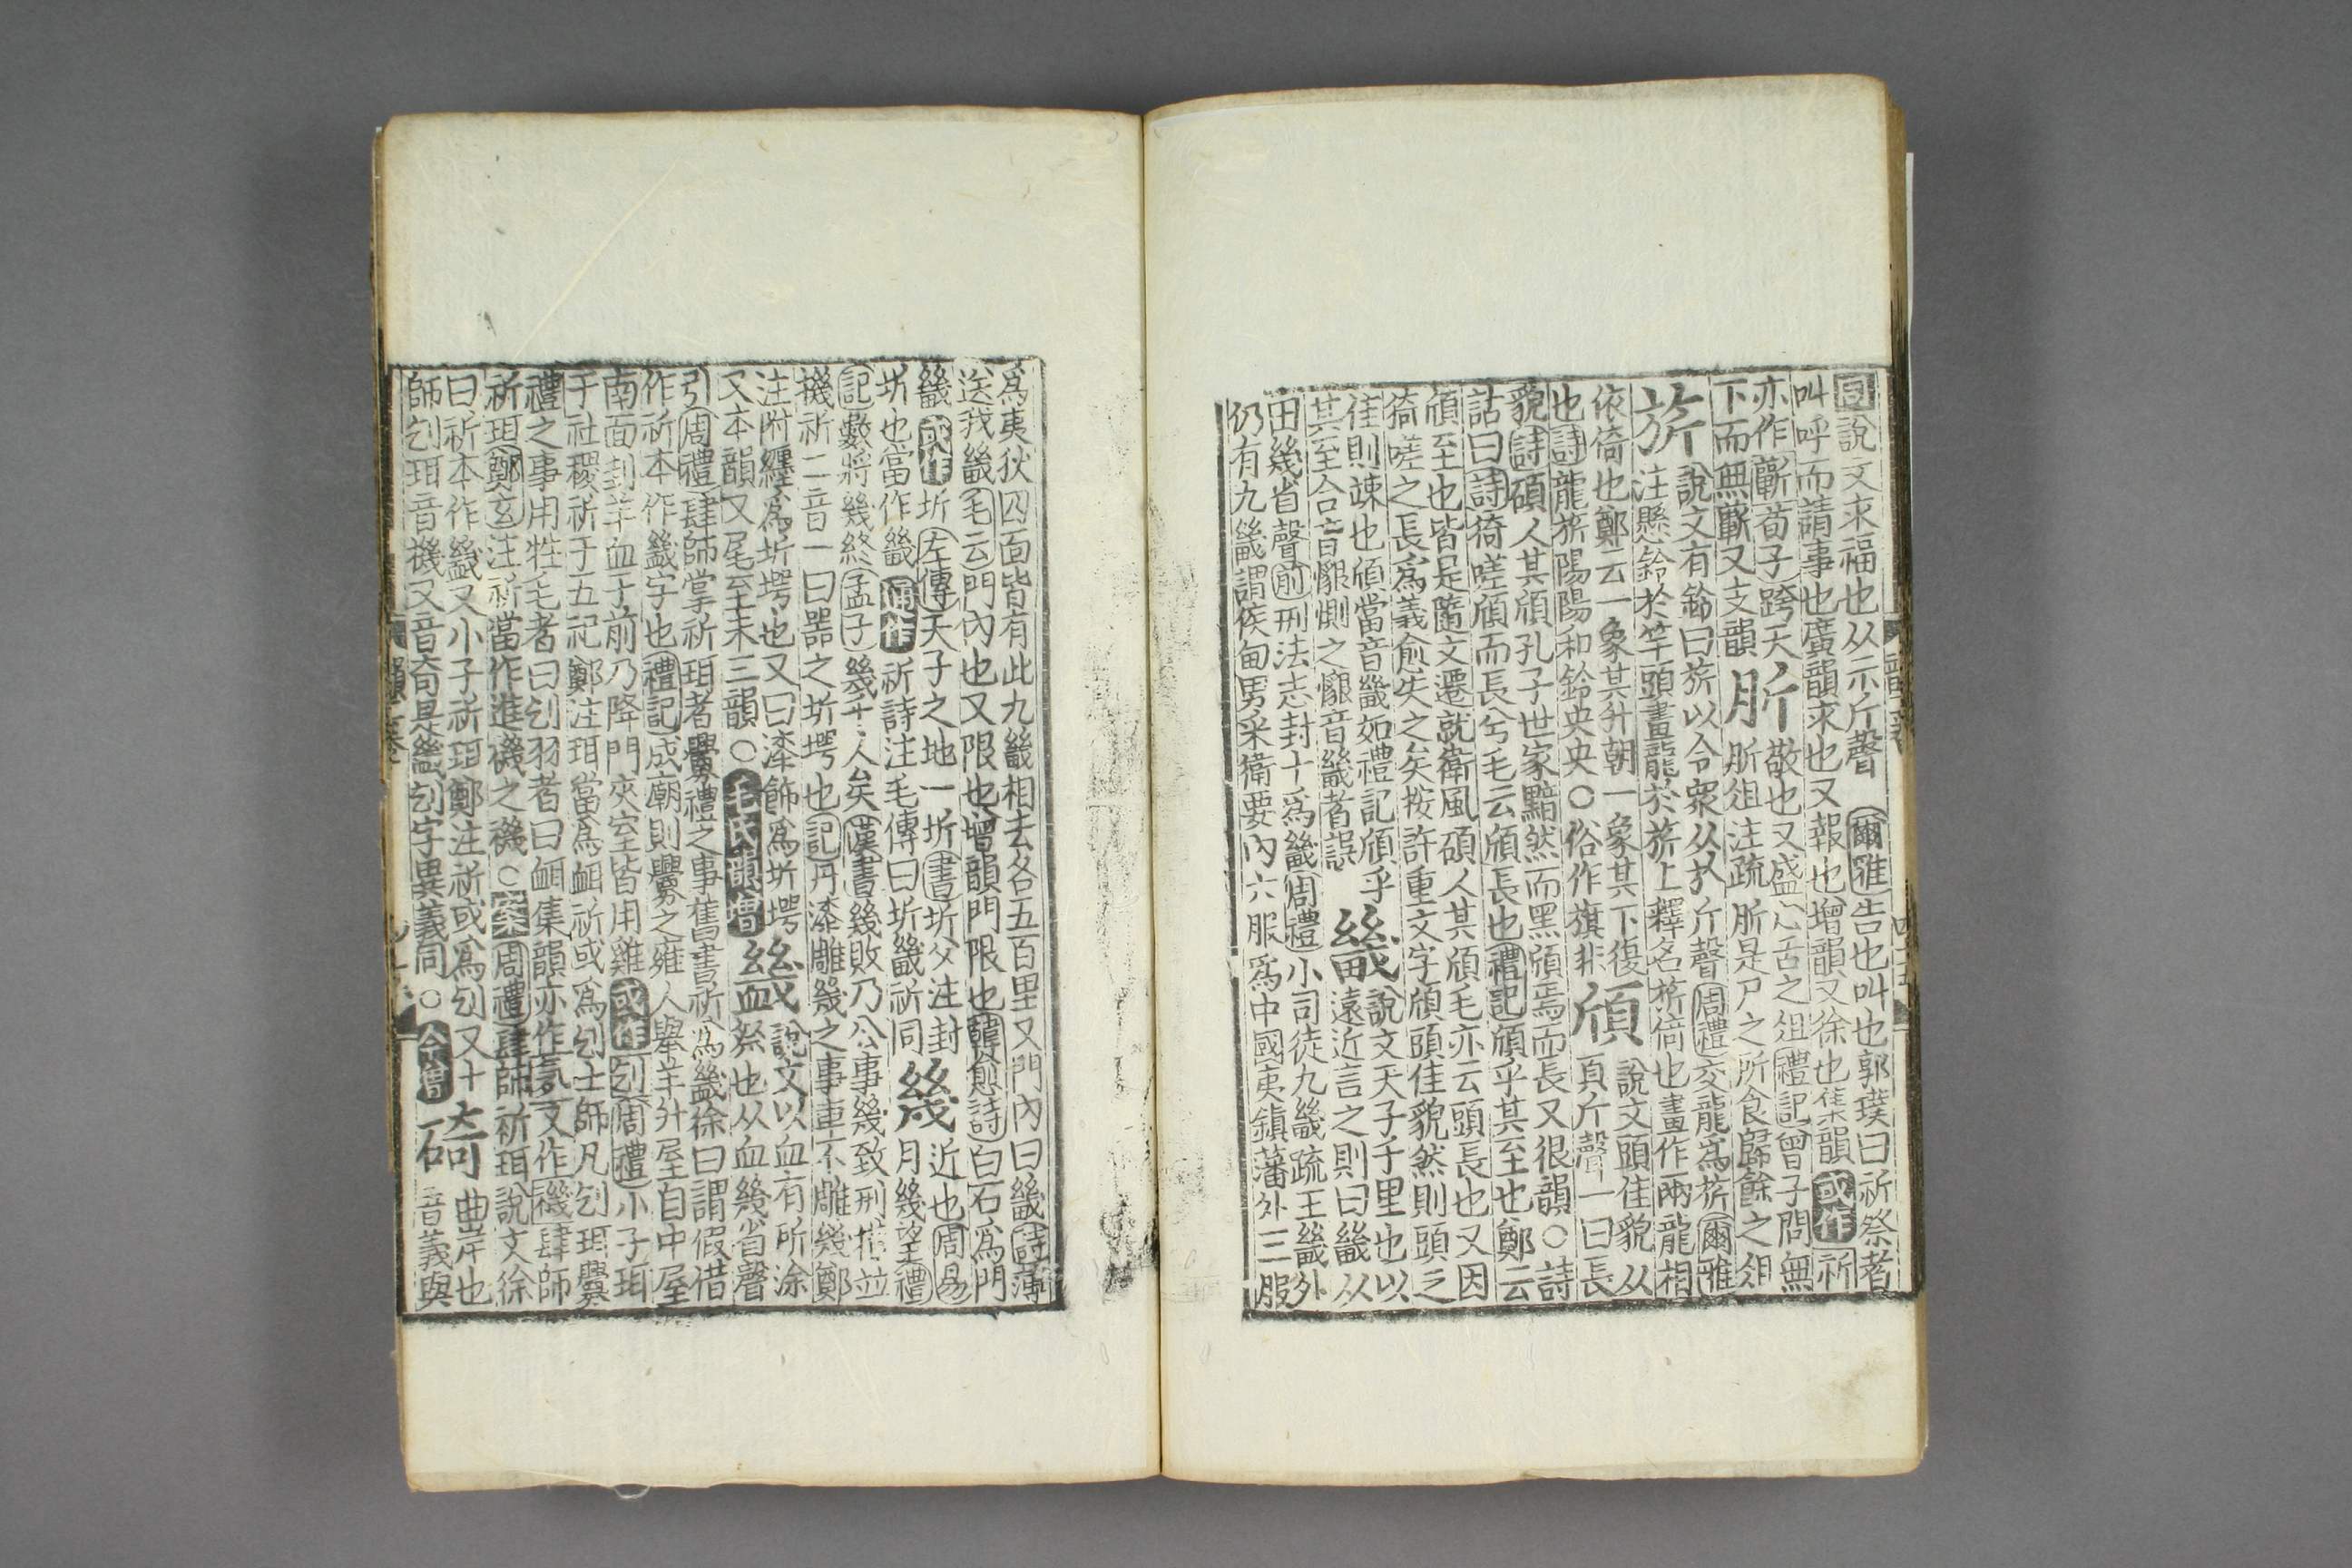 囙說文求福也从示斤聲爾雅告也叫也郭璞曰祈祭者
叫呼而請事也廣韻求也又報也增韻又徐也集韻或作祈
亦作蘄荀子跨天肵敬也又盛心舌之俎禮記曾子問無
下而無蘄又文韻肵俎注疏肵是尸之所食歸餘之俎
旂說文有鈴曰旂以令眾从㫃斤聲周禮交龍爲旂爾雅
注懸鈴於竿頭畫龍於旂上釋名旂倚也畫作兩龍相
依倚也鄭云一象其升朝一象其下復頎說文頭佳貌从
也詩龍旂陽陽和鈴央央○俗作旗非頁斤聲一曰長
貌詩碩人其頎孔子世家黯然而黑頎焉而長又很韻○詩
詁曰詩猗嗟頎而長兮毛云頎長也禮記頎乎其至也鄭云
頎至也皆是隨文遷就衛風碩人其頎毛亦云頭長也又因
猗嗟之長爲義愈失之矣按許重文字頎頭佳貌然則頭之
佳則竦也頎當音畿如禮記頎乎畿說文天子千里也以
其至合音懇惻之懇音畿者誤遠近言之則曰畿从
田幾省聲前刑法志封十爲畿周禮小司徒九畿疏王畿外
仍有九畿謂侯甸男采衛要內六服爲中國夷鎮藩外三服
爲夷狄四面皆有此九畿相去各五百里又門內曰畿詩薄
送我畿毛云門內也又限也增韻門限也韓愈詩白石爲門
畿或作圻左傳天子之地一圻書圻父注封幾近也周易
圻也當作畿通作祈詩注毛傳曰圻畿祈同月幾望禮
記數將幾終孟子幾千人矣漢書幾敗乃公事幾致刑措並
機祈二音一曰器之圻堮也記丹漆雕幾之事車不雕幾鄭
注附纏爲圻堮也又曰漆飾爲圻堮䘐說文以血有所涂
又本韻又尾至未三韻○毛氏韻增祭也从血幾省聲
引周禮肆師掌祈珥者釁禮之事舊書祈爲䘐徐曰謂假借
作祈本作䘐字也禮記成廟則釁之雍人舉羊升屋自中屋
南面刲羊血于前乃降門夾室皆用雞或作刉周禮小子珥
于社稷祈于五祀鄭注珥當爲衈祈或爲刉士師凡刉珥釁
禮之事用牲毛者曰刉羽者曰衈集韻亦作刏又作禨肆師
祈珥鄭玄注祈當作進禨之禨○案周禮肆師祈珥說文徐
曰祈本作䘐又小子祈珥鄭注祈或爲刉又士碕曲岸也
師刉珥音機又音奇是䘐刉字異義同○今增音義與